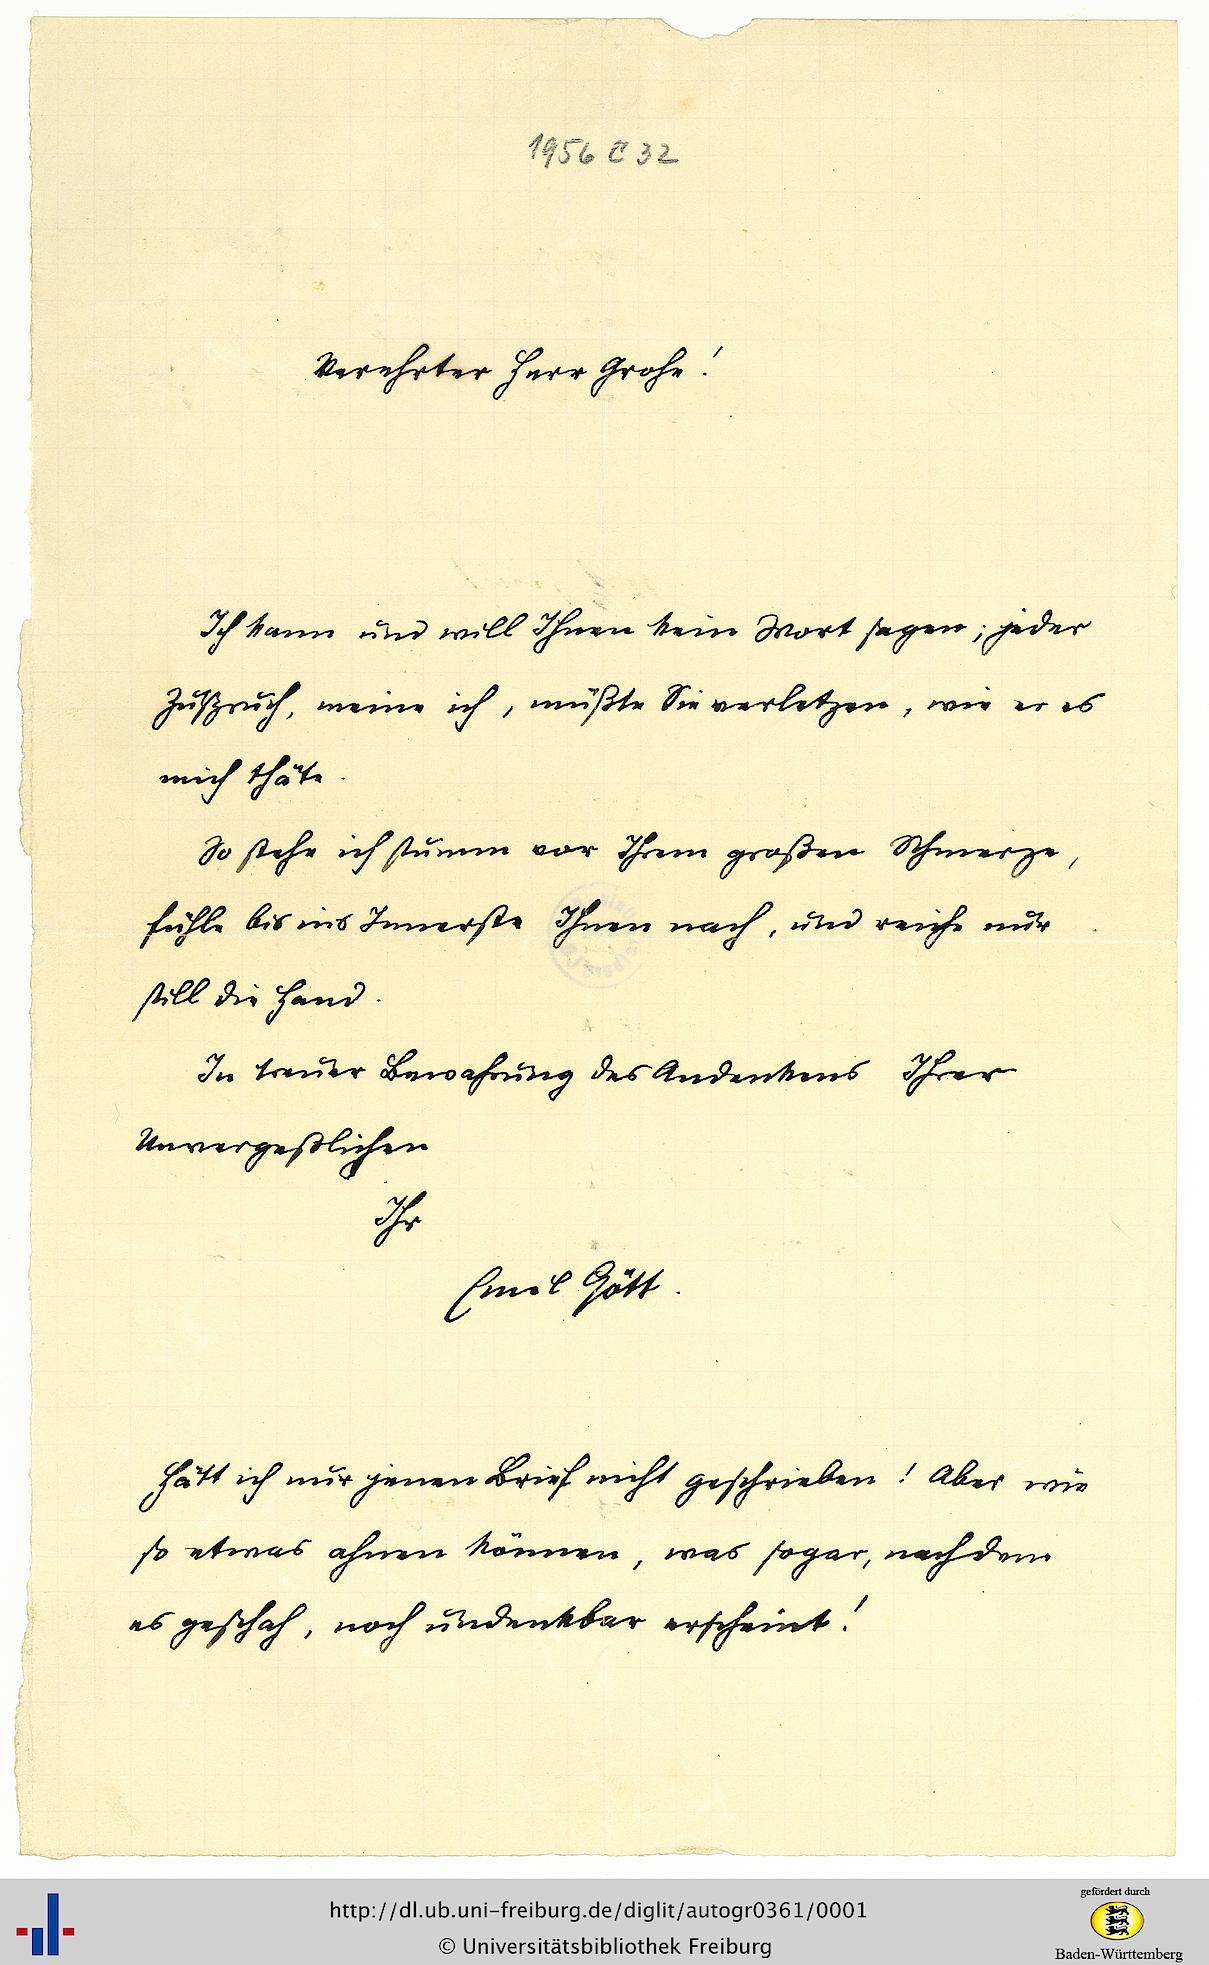 1956 C 32
Verehrter Herr Grohe!
Ich kann und will Ihnen kein Wort sagen; jeder
Zuspruch, meine ich, müßte Sie verletzen, wie er es
mich thäte.
So stehe ich stumm vor Ihrem großen Schmerze,
fühle bis ins Innerste Ihnen nach, und reiche nur
still die Hand.
In treuer Bewahrung des Andenkens Ihrer
Unvergeßlichen
Ihr
Emil Gött.
Hätt ich nur jenen Brief nicht geschrieben! Aber wie
so etwas ahnen können, was sogar, nachdem
es geschah, noch undenkbar erscheint!
http://dl.ub.uni-freiburg.de/diglit/autogr0361/0001
© Universitätsbibliothek Freiburg
gefördert durch
Baden-Württemberg